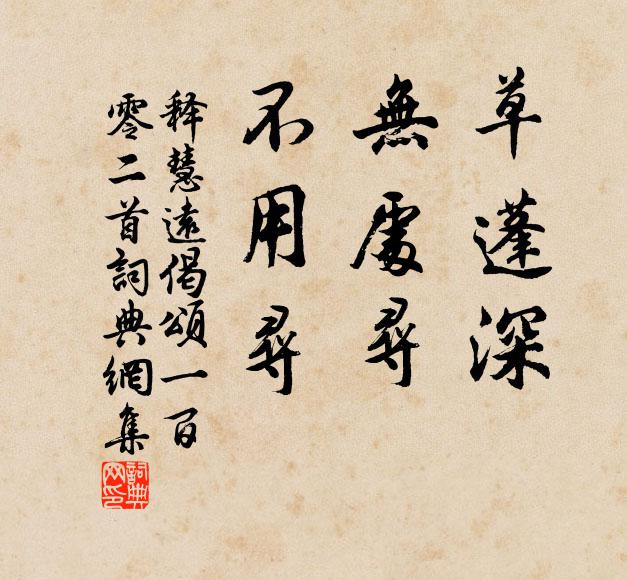 草蓬深
無處尋
不用尋
釋慧遠偈頌一百
零二首詞典網集
詞典
网印